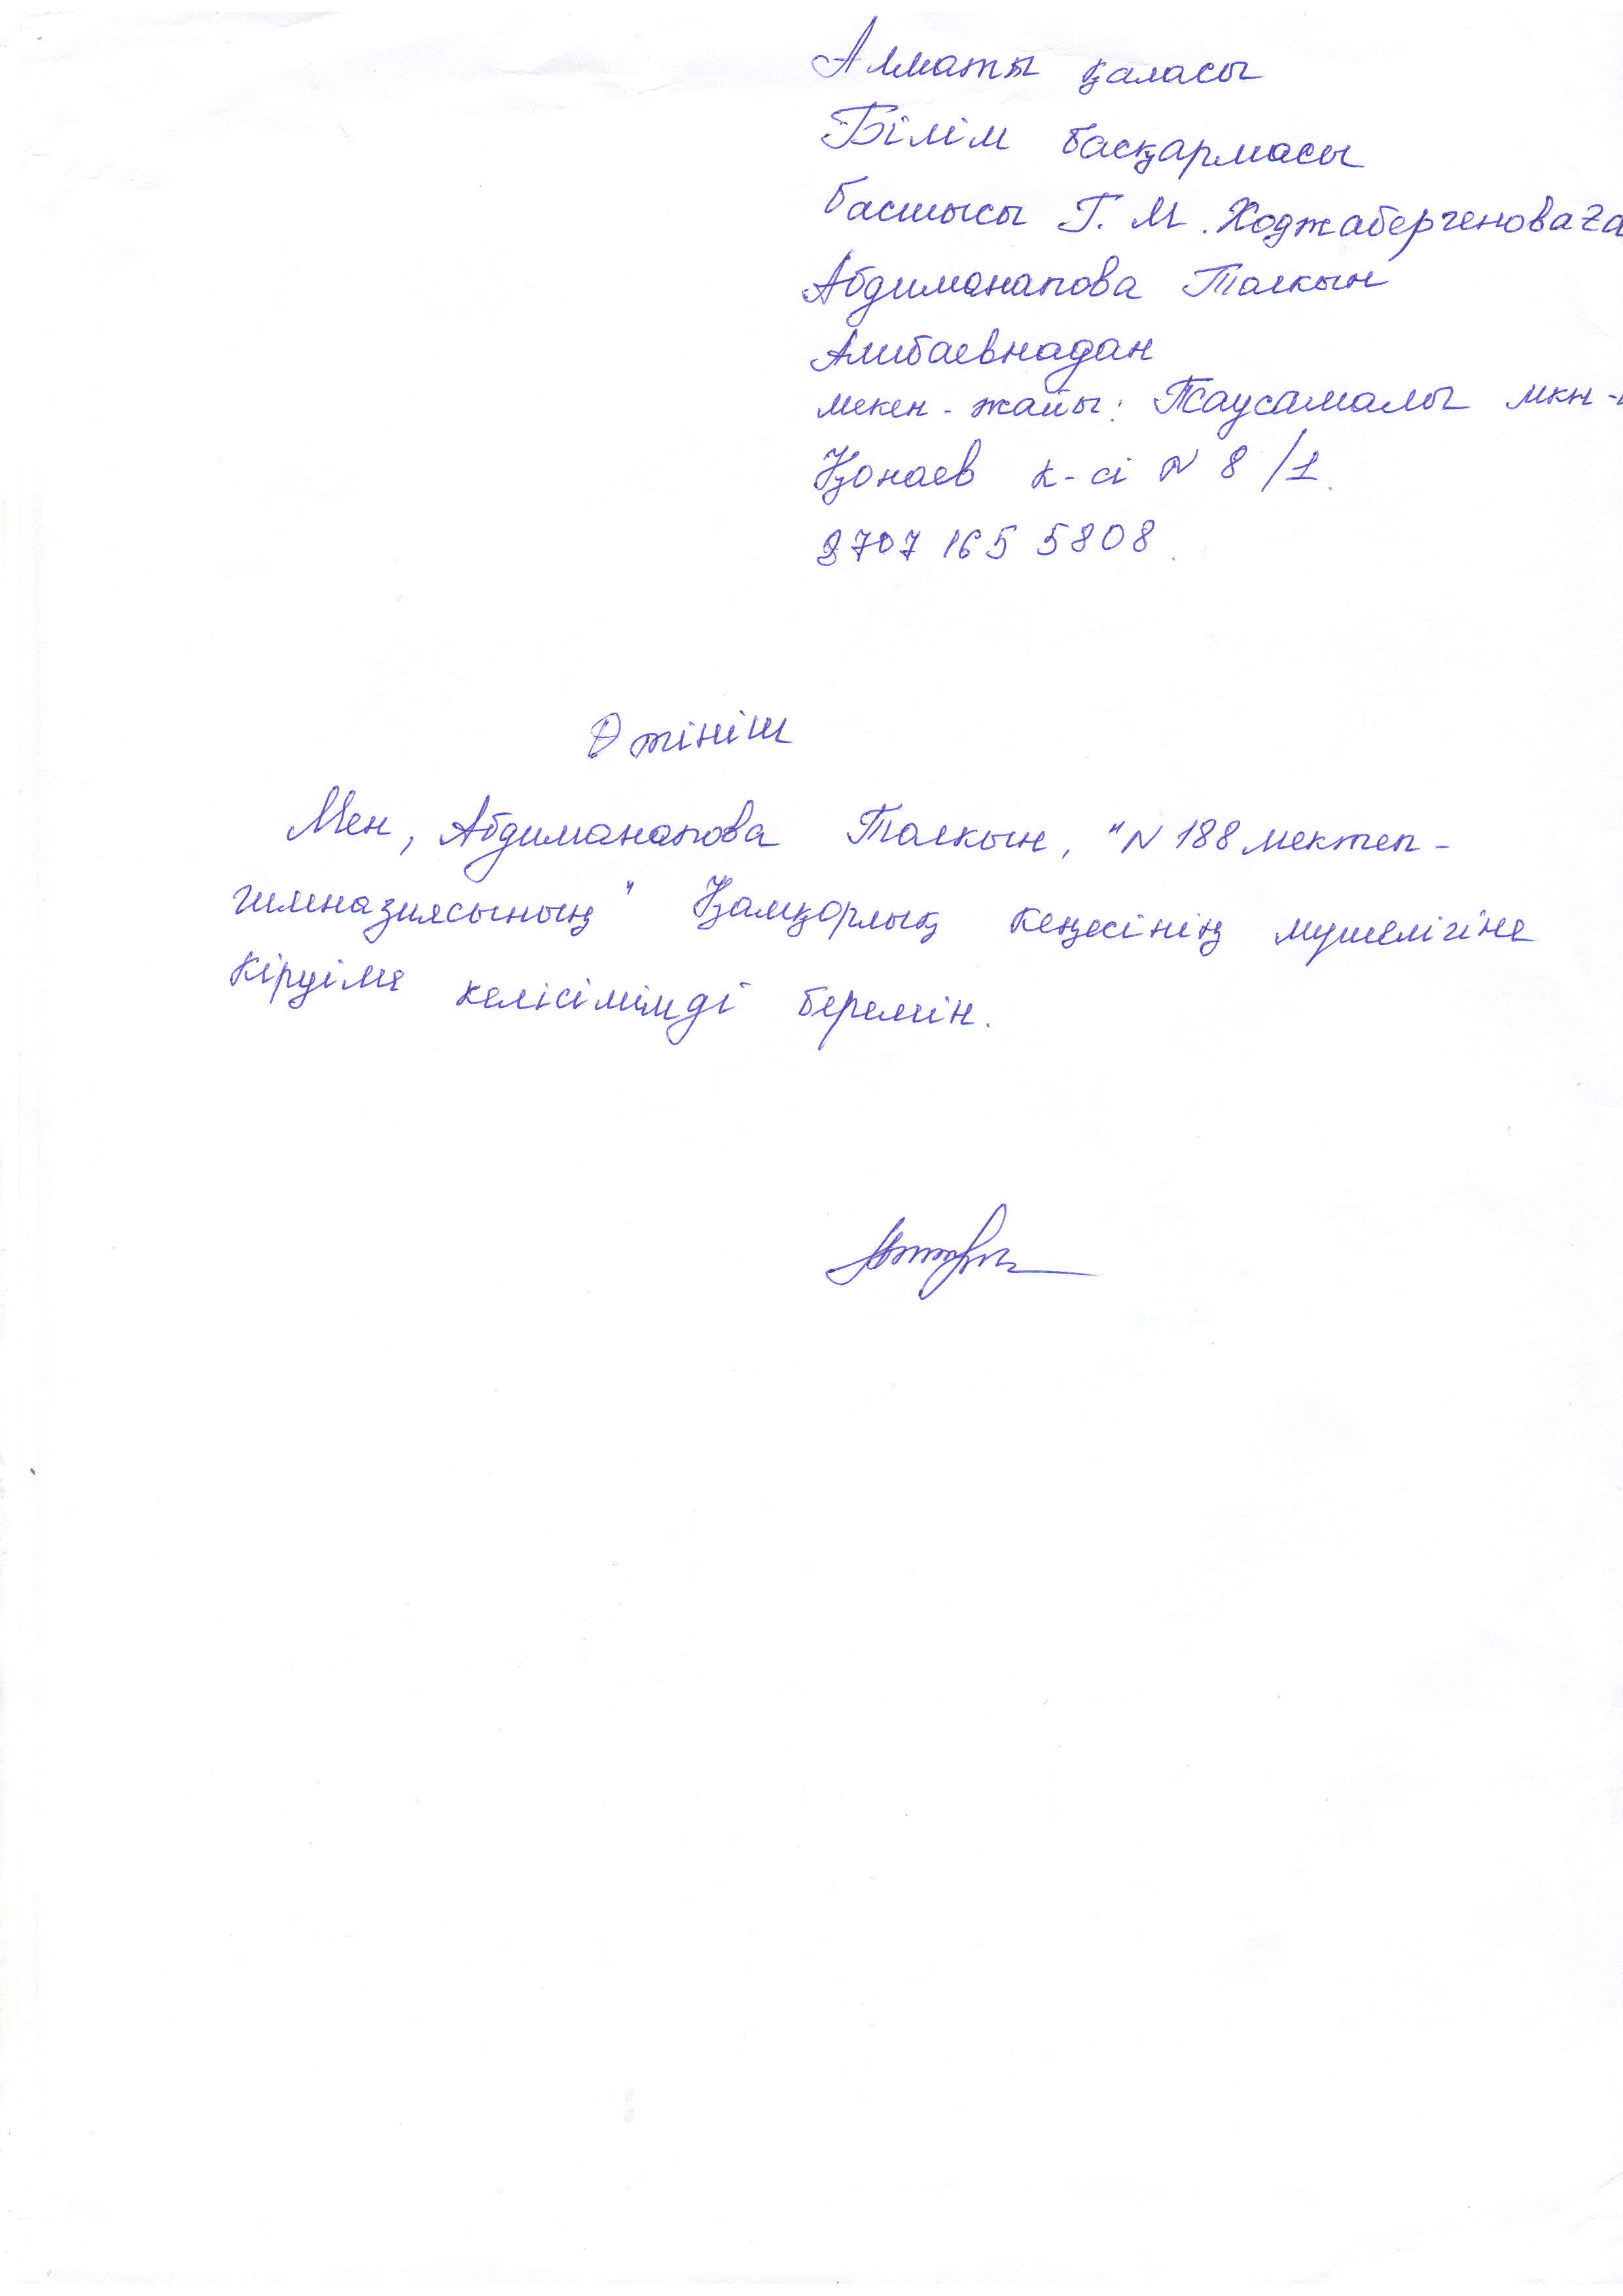 Алматы қаласы
Білім басқармасы
басшысы Г. М. Ходжабергеноваға
Абдиманапова Талкын
Алибаевнадан
мекен-жайы: Таусамалы мкн-
Қонаев к-сі N 8/1.
8707 165 5808.
Өтініш
Мен, Абдиманапова Талкын, "N 188 мектеп-
гимназиясының" Қамқорлық кеңесінің мүшелігіне
кіруіме келісімімді беремін.